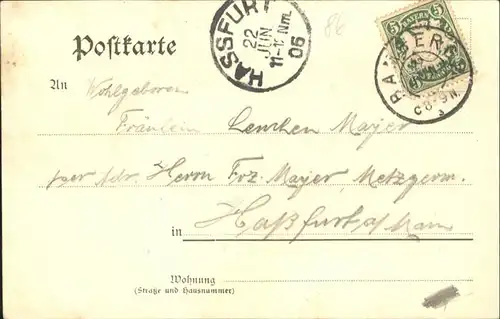 Postkarte
HASSFURT
22
JUN
11-12 Nm.
06
86
5 BAYERN 5
An Wohlgeboren
Fräulein Lenchen Majer
per Adr. Herrn Frz. Majer, Metzgerm.
in Haßfurt a/Main
Wohnung
(Straße und Hausnummer)